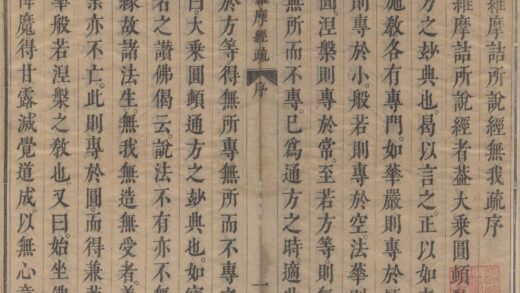 維摩詰所說經無我疏序
維摩詰所說經者葢大乘圓頓
方之玅典也曷以言之正以如
施教各有專門如華嚴則專於
則專於小般若則專於空法華則
圓涅槃則專於常至若方等則無
無所而不專已為通方之時適此
維摩經疏 序 一
於方等得無所專無所而不專
曰大乘圓頓通方之玅典也如寶
者之讚佛偈云說法不有亦不無
緣故諸法生無我無造無受者善
亦不亡此則專於圓而得兼
華般若涅槃之教也又曰始坐佛
降魔得甘露滅覺道成以無心意